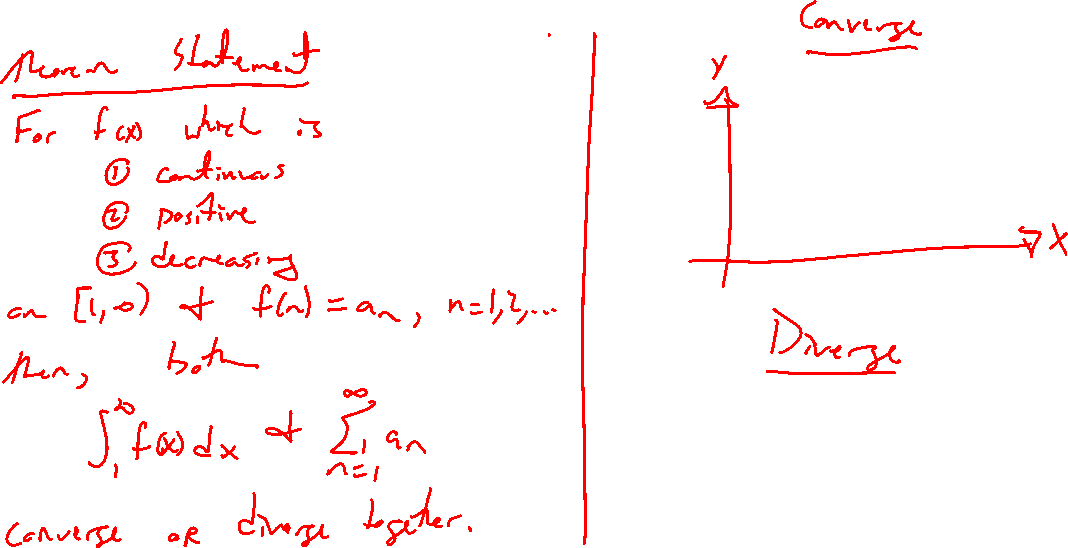 Theorem Statement
For f(x) which is
① continuous
② positive
③ decreasing
on [1, ∞) & f(n) = aₙ, n=1,2,...
then, both
∫₁^∞ f(x) dx & ∑_{n=1}^∞ aₙ
converge or diverge together.
Converge
Y
X
Diverge